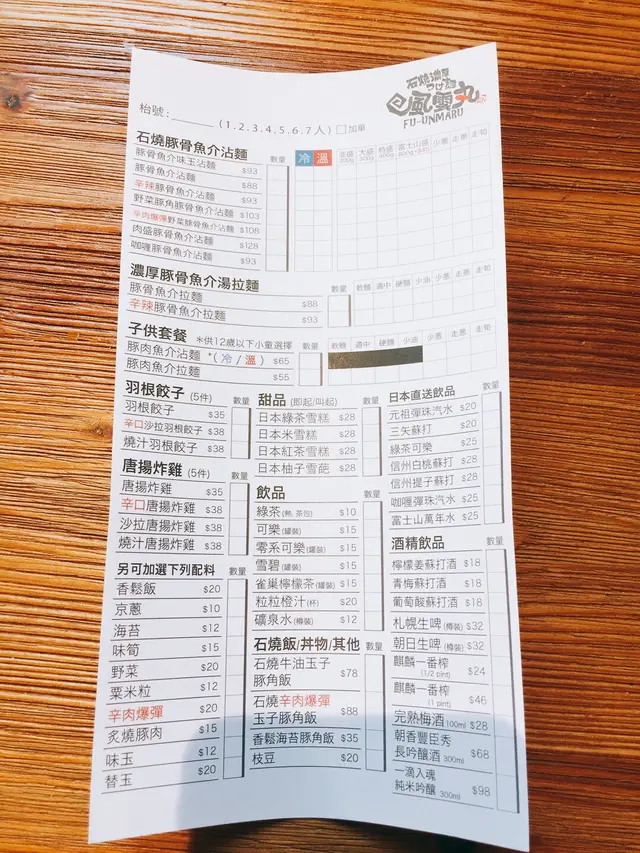 石燒濃厚
つけ麵
風雲丸
FU-UNMARU
枱號:
(1.2.3.4.5.6.7人) 加單
石燒豚骨魚介沾麵 數量 冷 溫 200g 大盛 300g 特盛 400g 富士山盛 600g 少蔥 走蔥 走筍
豚骨魚介味玉沾麵 $93
豚骨魚介沾麵 $88
辛辣豚骨魚介沾麵 $93
野菜豚角豚骨魚介沾麵 $103
辛肉爆彈野菜豚骨魚介沾麵 $108
肉盛豚骨魚介沾麵 $128
咖喱豚骨魚介沾麵 $93
濃厚豚骨魚介湯拉麵 數量 軟麵 適中 硬麵 少油 少蔥 走蔥 走筍
豚骨魚介拉麵 $88
辛辣豚骨魚介拉麵 $93
子供套餐 *供12歲以下小童選擇 數量 軟麵 適中 硬麵 少油 少蔥 走蔥 走筍
豚肉魚介沾麵 *(冷/溫) $65
豚肉魚介拉麵 $55
羽根餃子 (5件) 數量
羽根餃子 $35
辛口沙拉羽根餃子 $38
燒汁羽根餃子 $38
唐揚炸雞 (5件) 數量
唐揚炸雞 $35
辛口唐揚炸雞 $38
沙拉唐揚炸雞 $38
燒汁唐揚炸雞 $38
另可加選下列配料 數量
香鬆飯 $20
京蔥 $10
海苔 $12
味筍 $15
野菜 $20
粟米粒 $12
辛肉爆彈 $20
炙燒豚肉 $15
味玉 $12
替玉 $20
甜品 (即起/叫起) 數量
日本綠茶雪糕 $28
日本米雪糕 $28
日本紅茶雪糕 $28
日本柚子雪葩 $28
飲品 數量
綠茶(熱, 茶包) $10
可樂(罐裝) $15
零系可樂(罐裝) $15
雪碧(罐裝) $15
雀巢檸檬茶(罐裝) $15
粒粒橙汁(杯) $20
礦泉水(樽裝) $12
石燒飯/丼物/其他 數量
石燒牛油玉子
豚角飯 $78
石燒辛肉爆彈
玉子豚角飯 $88
香鬆海苔豚角飯 $35
枝豆 $20
日本直送飲品 數量
元祖彈珠汽水 $20
三矢蘇打 $20
綠茶可樂 $25
信州白桃蘇打 $25
信州提子蘇打 $25
咖喱彈珠汽水 $25
富士山萬年水 $25
酒精飲品 數量
檸檬姜蘇打酒 $18
青梅蘇打酒 $18
葡萄酸蘇打酒 $18
札幌生啤(樽裝) $32
朝日生啤(樽裝) $32
麒麟一番榨
(1/2 pint) $24
麒麟一番榨
(1 pint) $46
完熟梅酒100ml $28
朝香豐臣秀
長吟釀酒 300ml $68
一滴入魂
純米吟釀 300ml $98